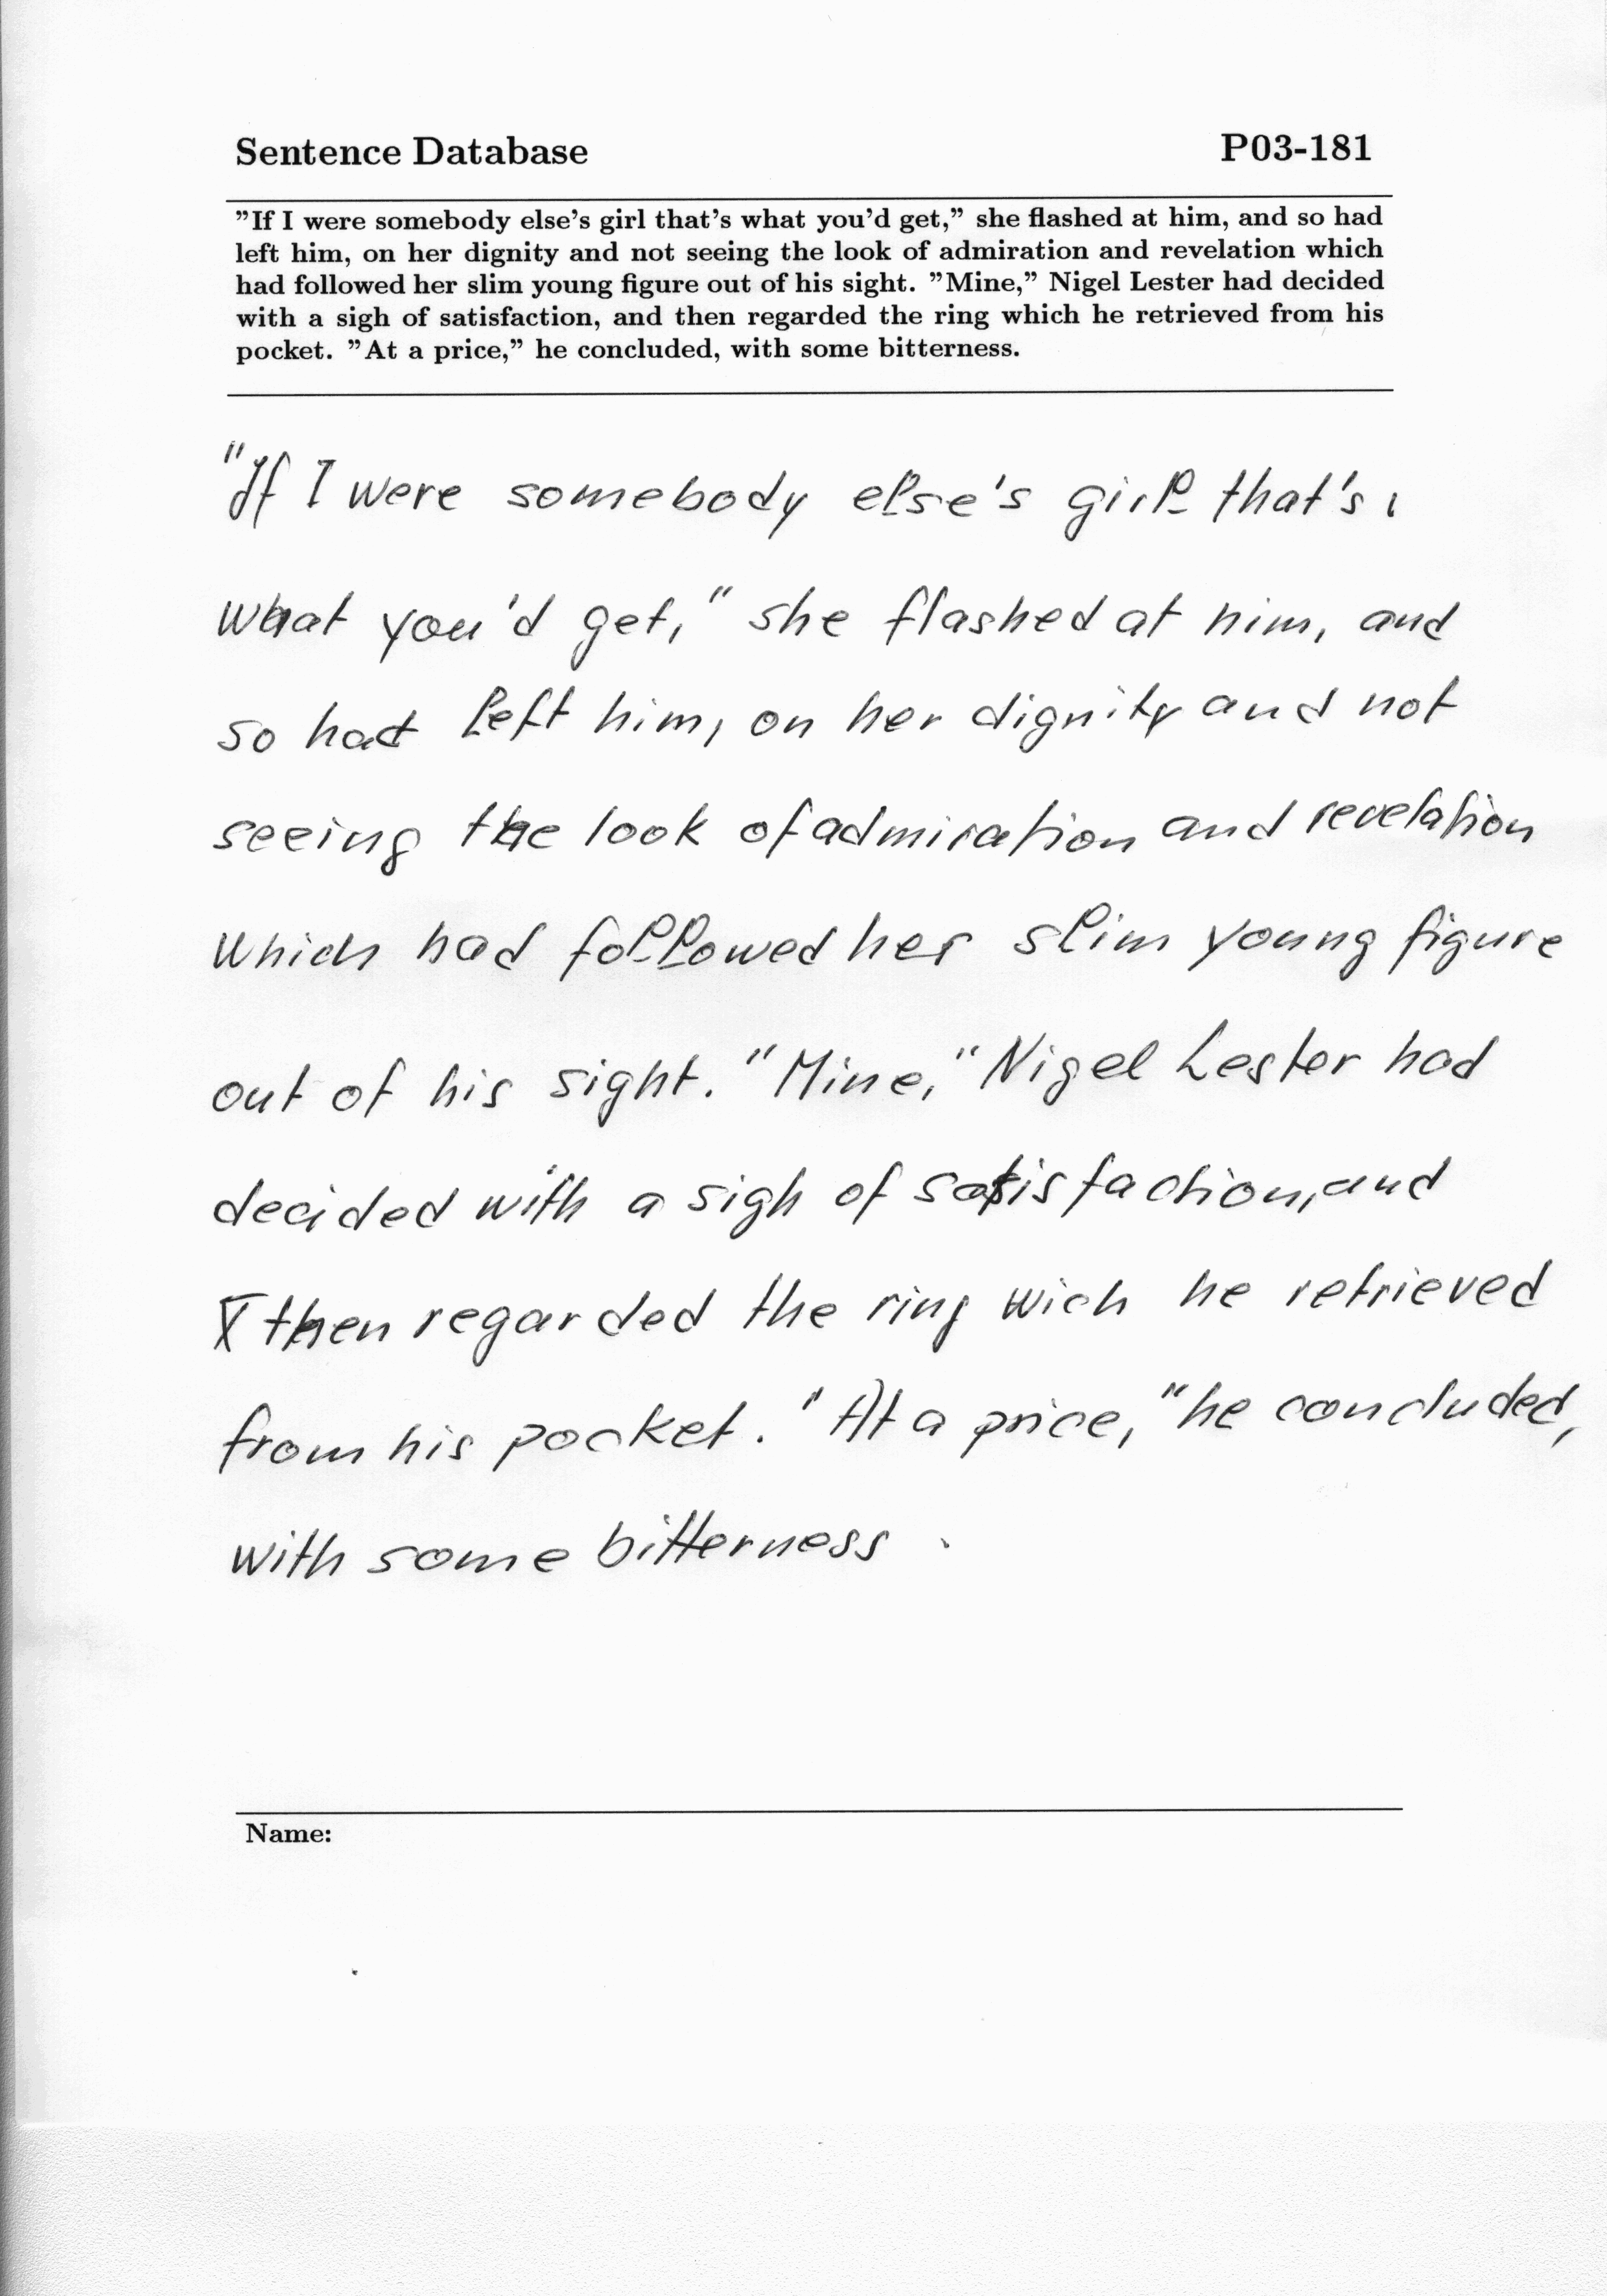 Sentence Database P03-181
"If I were somebody else's girl that's what you'd get," she flashed at him, and so had
left him, on her dignity and not seeing the look of admiration and revelation which
had followed her slim young figure out of his sight. "Mine," Nigel Lester had decided
with a sigh of satisfaction, and then regarded the ring which he retrieved from his
pocket. "At a price," he concluded, with some bitterness.
"If I were somebody else's girl that's
what you'd get," she flashed at him, and
so had left him, on her dignity and not
seeing the look of admiration and revelation
which had followed her slim young figure
out of his sight. "Mine," Nigel Lester had
decided with a sigh of satisfaction, and
then regarded the ring wich he retrieved
from his pocket. "At a price," he concluded,
with some bitterness.
Name: